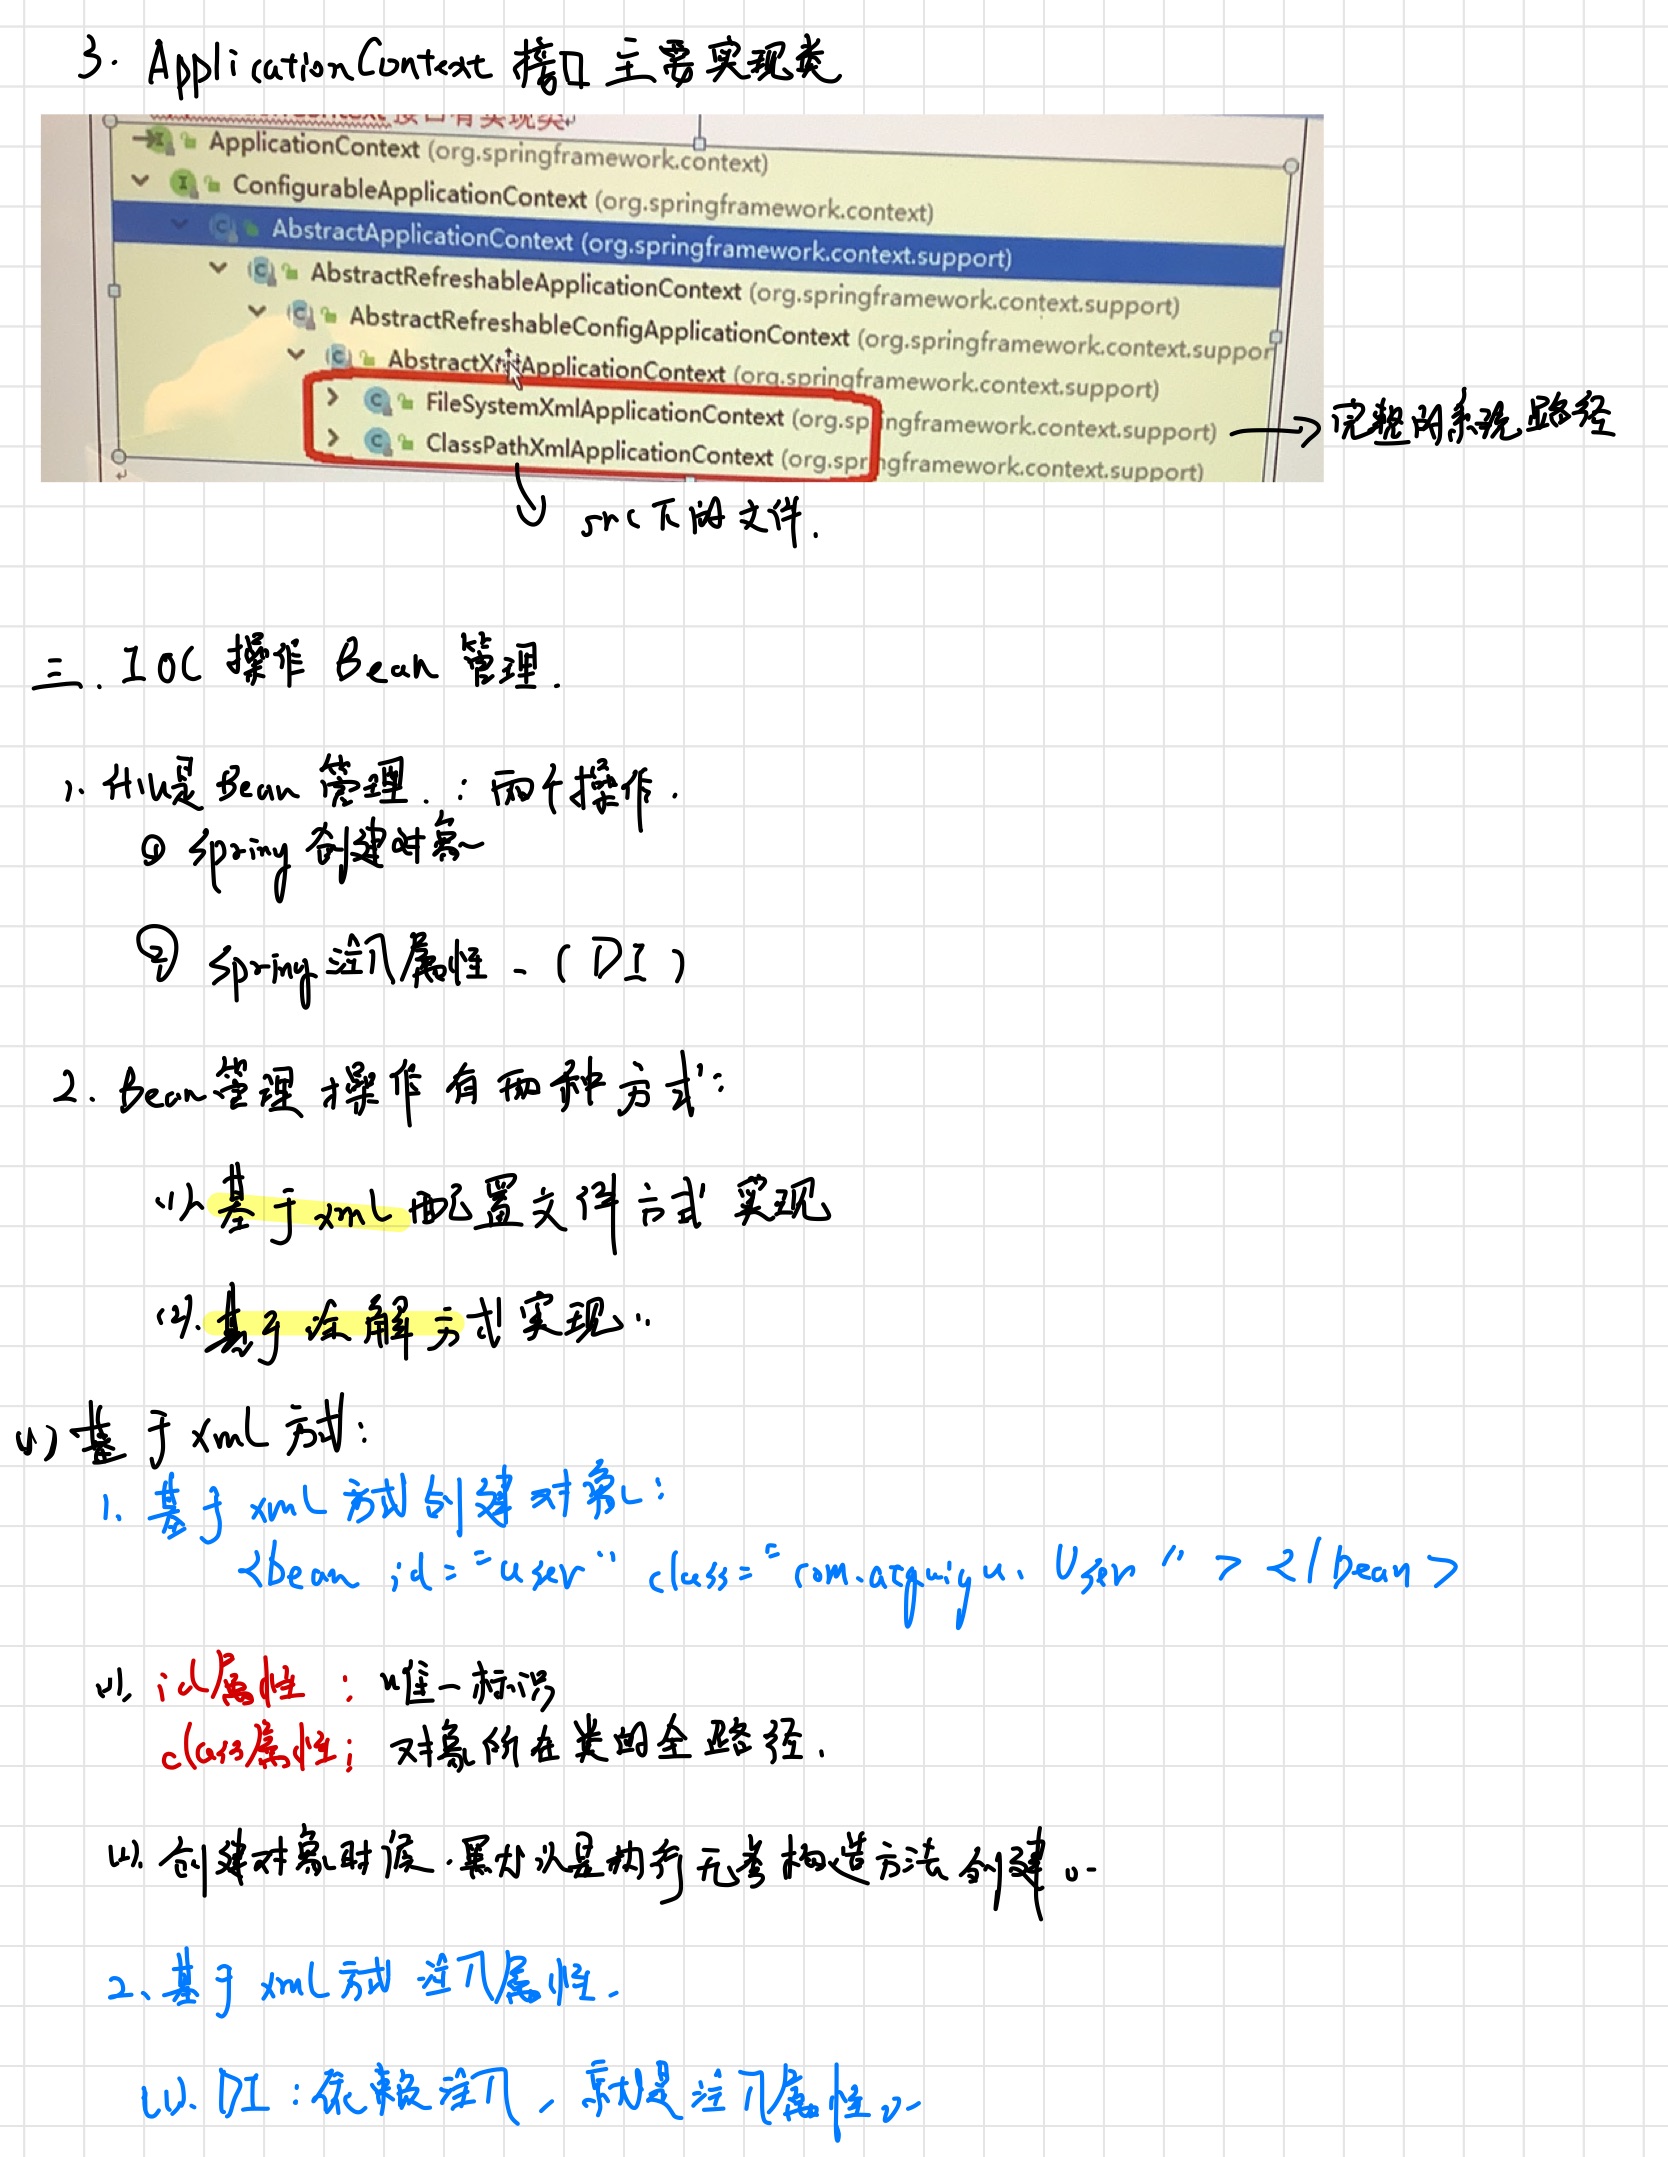 3. ApplicationContext 接口主要实现类
接口有实现类
ApplicationContext (org.springframework.context)
ConfigurableApplicationContext (org.springframework.context)
AbstractApplicationContext (org.springframework.context.support)
AbstractRefreshableApplicationContext (org.springframework.context.support)
AbstractRefreshableConfigApplicationContext (org.springframework.context.suppor
AbstractXmlApplicationContext (org.springframework.context.support)
FileSystemXmlApplicationContext (org.springframework.context.support)
→完整的系统路径
ClassPathXmlApplicationContext (org.springframework.context.support)
src下的文件.
三. IOC 操作 Bean 管理.
1. 什么是 Bean 管理.: 两个操作.
① Spring 创建对象
② Spring 注入属性 - (DI)
2. Bean管理 操作有两种方式:
(1). 基于xml配置文件方式实现
(2). 基于注解方式实现..
(1) 基于xml 方式:
1. 基于 xml 方式创建对象:
<bean id="user" class="com.atguigu.User"></bean>
(1). id属性: 唯一标识
class属性: 对象所在类的全路径.
(2). 创建对象时候.默认是执行无参构造方法创建。
2、基于 xml方式 注入属性.
(1). DI:依赖注入, 就是注入属性。